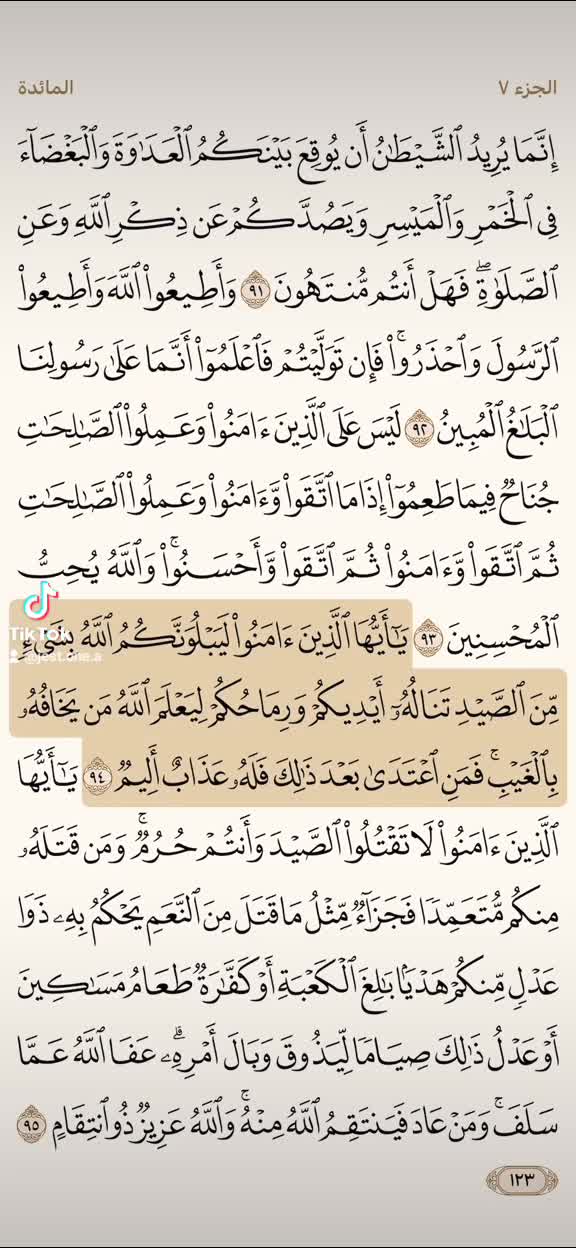 الجزء ٧
المائدة
إِنَّمَا يُرِيدُ ٱلشَّيْطَٰنُ أَن يُوقِعَ بَيْنَكُمُ ٱلْعَدَٰوَةَ وَٱلْبَغْضَآءَ
فِى ٱلْخَمْرِ وَٱلْمَيْسِرِ وَيَصُدَّكُمْ عَن ذِكْرِ ٱللَّهِ وَعَنِ
ٱلصَّلَوٰةِ ۖ فَهَلْ أَنتُم مُّنتَهُونَ ٩١ وَأَطِيعُوا۟ ٱللَّهَ وَأَطِيعُوا۟
ٱلرَّسُولَ وَٱحْذَرُوا۟ ۚ فَإِن تَوَلَّيْتُمْ فَٱعْلَمُوٓا۟ أَنَّمَا عَلَىٰ رَسُولِنَا
ٱلْبَلَٰغُ ٱلْمُبِينُ ٩٢ لَيْسَ عَلَى ٱلَّذِينَ ءَامَنُوا۟ وَعَمِلُوا۟ ٱلصَّٰلِحَٰتِ
جُنَاحٌ فِيمَا طَعِمُوٓا۟ إِذَا مَا ٱتَّقَوا۟ وَّءَامَنُوا۟ وَعَمِلُوا۟ ٱلصَّٰلِحَٰتِ
ثُمَّ ٱتَّقَوا۟ وَّءَامَنُوا۟ ثُمَّ ٱتَّقَوا۟ وَّأَحْسَنُوا۟ ۗ وَٱللَّهُ يُحِبُّ
ٱلْمُحْسِنِينَ ٩٣ يَٰٓأَيُّهَا ٱلَّذِينَ ءَامَنُوا۟ لَيَبْلُوَنَّكُمُ ٱللَّهُ بِشَىْءٍ
مِّنَ ٱلصَّيْدِ تَنَالُهُۥٓ أَيْدِيكُمْ وَرِمَاحُكُمْ لِيَعْلَمَ ٱللَّهُ مَن يَخَافُهُۥ
بِٱلْغَيْبِ ۚ فَمَنِ ٱعْتَدَىٰ بَعْدَ ذَٰلِكَ فَلَهُۥ عَذَابٌ أَلِيمٌ ٩٤ يَٰٓأَيُّهَا
ٱلَّذِينَ ءَامَنُوا۟ لَا تَقْتُلُوا۟ ٱلصَّيْدَ وَأَنتُمْ حُرُمٌ ۚ وَمَن قَتَلَهُۥ
مِنكُم مُّتَعَمِّدًا فَجَزَآءٌ مِّثْلُ مَا قَتَلَ مِنَ ٱلنَّعَمِ يَحْكُمُ بِهِۦ ذَوَا
عَدْلٍ مِّنكُمْ هَدْيًۢا بَٰلِغَ ٱلْكَعْبَةِ أَوْ كَفَّٰرَةٌ طَعَامُ مَسَٰكِينَ
أَوْ عَدْلُ ذَٰلِكَ صِيَامًا لِّيَذُوقَ وَبَالَ أَمْرِهِۦ ۗ عَفَا ٱللَّهُ عَمَّا
سَلَفَ ۚ وَمَنْ عَادَ فَيَنتَقِمُ ٱللَّهُ مِنْهُ ۗ وَٱللَّهُ عَزِيزٌ ذُو ٱنتِقَامٍ ٩٥
١٢٣
TikTok
@jest.one.a